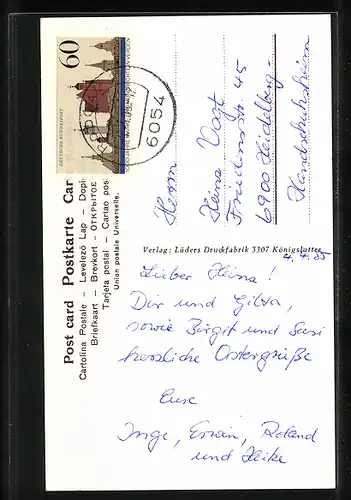 60
DEUTSCHE BUNDESPOST
6054
Post card Postkarte Car
Cartolina Postale – Levelező Lap – Dopi
Briefkaart – Brevkort – ОТКРЫТОЕ
Tarjeta postal – Cartao pos
Union postale Universelle.
Herrn
Heinz Vogt
45
6900 Heidelberg-
Handschuhsheim
Verlag: Lüders Druckfabrik 3307 Königslutter
4.4.85
Lieber Heinz!
Dir und Gilda,
sowie Birgit und Susi
herzliche Ostergrüße
Eure
Inge, Erwin, Roland
und Heike